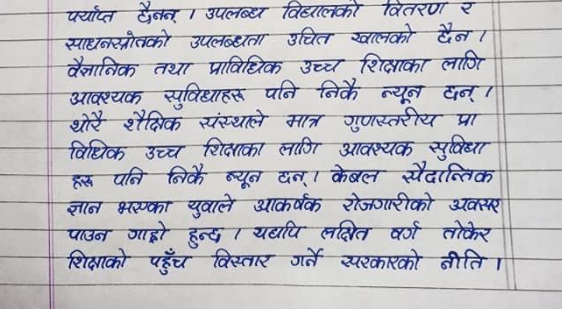 पर्याप्त छैनन् । उपलब्ध विद्यालको वितरण र
साधनस्रोतको उपलब्धता उचित खालको छैन ।
वैज्ञानिक तथा प्राविधिक उच्च शिक्षाका लागि
आवश्यक सुविधाहरू पनि निकै न्यून छन् ।
थोरै शैक्षिक संस्थाले मात्र गुणस्तरीय प्रा
विधिक उच्च शिक्षाका लागि आवश्यक सुविधा
हरू पनि निकै न्यून छन् । केबल सैदान्तिक
ज्ञान भएका युवाले आकर्षक रोजगारीको अवसर
पाउन गाह्रो हुन्छ । यद्यपि लक्षित वर्ग तोकेर
शिक्षाको पहुँच विस्तार गर्ने सरकारको नीति ।